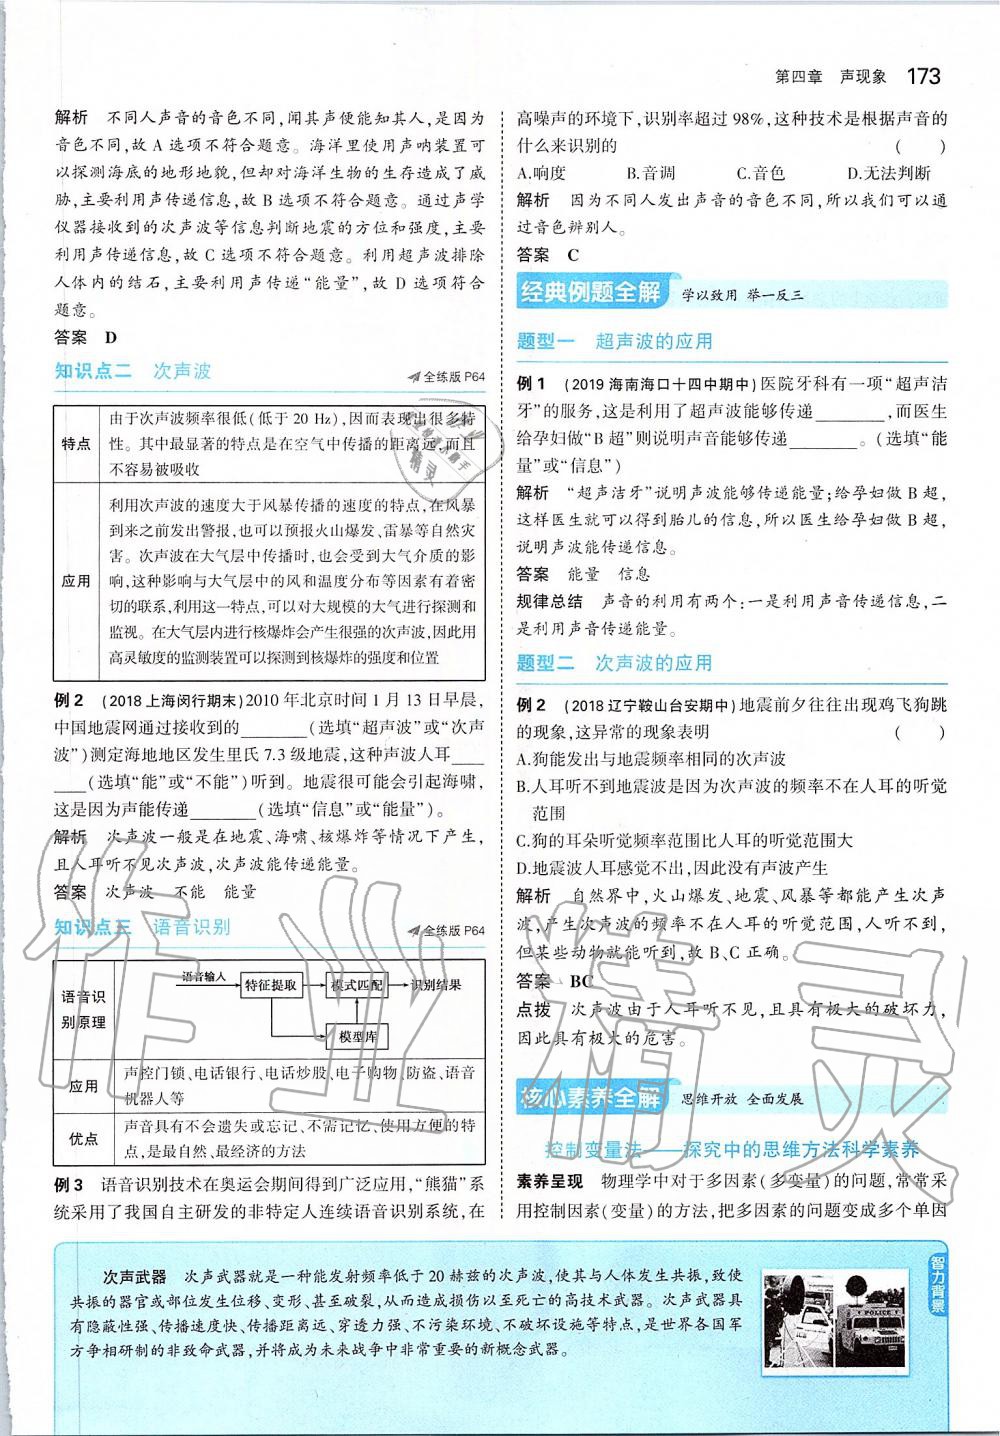 第四章 声现象 173
解析 不同人声音的音色不同,闻其声便能知其人,是因为
音色不同,故 A 选项不符合题意。海洋里使用声呐装置可
以探测海底的地形地貌,但却对海洋生物的生存造成了威
胁,主要利用声传递信息,故 B 选项不符合题意。通过声学
仪器接收到的次声波等信息判断地震的方位和强度,主要
利用声传递信息,故 C 选项不符合题意。利用超声波排除
人体内的结石,主要利用声传递“能量”,故 D 选项符合
题意。
答案 D
知识点二 次声波
全练版 P64
特点
由于次声波频率很低(低于 20 Hz),因而表现出很多特
性。其中最显著的特点是在空气中传播的距离远,而且
不容易被吸收
应用
利用次声波的速度大于风暴传播的速度的特点,在风暴
到来之前发出警报,也可以预报火山爆发、雷暴等自然灾
害。次声波在大气层中传播时,也会受到大气介质的影
响,这种影响与大气层中的风和温度分布等因素有着密
切的联系,利用这一特点,可以对大规模的大气进行探测和
监视。在大气层内进行核爆炸会产生很强的次声波,因此用
高灵敏度的监测装置可以探测到核爆炸的强度和位置
例 2 (2018 上海闵行期末)2010 年北京时间 1 月 13 日早晨,
中国地震网通过接收到的________(选填“超声波”或“次声
波”)测定海地地区发生里氏 7.3 级地震,这种声波人耳____
____(选填“能”或“不能”)听到。地震很可能会引起海啸,
这是因为声能传递________(选填“信息”或“能量”)。
解析 次声波一般是在地震、海啸、核爆炸等情况下产生,
且人耳听不见次声波,次声波能传递能量。
答案 次声波 不能 能量
知识点三 语音识别
全练版 P64
语音识
别原理
语音输入 特征提取 模式匹配 识别结果
模型库
应用
声控门锁、电话银行、电话炒股、电子购物、防盗、语音
机器人等
优点
声音具有不会遗失或忘记、不需记忆、使用方便的特
点,是最自然、最经济的方法
例 3 语音识别技术在奥运会期间得到广泛应用,“熊猫”系
统采用了我国自主研发的非特定人连续语音识别系统,在
高噪声的环境下,识别率超过 98%,这种技术是根据声音的
什么来识别的 ( )
A.响度 B.音调 C.音色 D.无法判断
解析 因为不同人发出声音的音色不同,所以我们可以通
过音色辨别人。
答案 C
经典例题全解 学以致用 举一反三
题型一 超声波的应用
例 1 (2019 海南海口十四中期中)医院牙科有一项“超声洁
牙”的服务,这是利用了超声波能够传递________,而医生
给孕妇做“B 超”则说明声音能够传递________。(选填“能
量”或“信息”)
解析 “超声洁牙”说明声波能够传递能量;给孕妇做 B 超,
这样医生就可以得到胎儿的信息,所以医生给孕妇做 B 超,
说明声波能传递信息。
答案 能量 信息
规律总结 声音的利用有两个:一是利用声音传递信息,二
是利用声音传递能量。
题型二 次声波的应用
例 2 (2018 辽宁鞍山台安期中)地震前夕往往出现鸡飞狗跳
的现象,这异常的现象表明 ( )
A.狗能发出与地震频率相同的次声波
B.人耳听不到地震波是因为次声波的频率不在人耳的听觉
范围
C.狗的耳朵听觉频率范围比人耳的听觉范围大
D.地震波人耳感觉不出,因此没有声波产生
解析 自然界中,火山爆发、地震、风暴等都能产生次声
波,产生次声波的频率不在人耳的听觉范围,人听不到,
但某些动物就能听到,故 B、C 正确。
答案 BC
点拨 次声波由于人耳听不见,且具有极大的破坏力,
因此具有极大的危害。
核心素养全解 思维开放 全面发展
控制变量法——探究中的思维方法科学素养
素养呈现 物理学中对于多因素(多变量)的问题,常常采
用控制因素(变量)的方法,把多因素的问题变成多个单因
智力背景
次声武器 次声武器就是一种能发射频率低于 20 赫兹的次声波,使其与人体发生共振,致使
共振的器官或部位发生位移、变形、甚至破裂,从而造成损伤以至死亡的高技术武器。次声武器具
有隐蔽性强、传播速度快、传播距离远、穿透力强、不污染环境、不破坏设施等特点,是世界各国军
方争相研制的非致命武器,并将成为未来战争中非常重要的新概念武器。
POLICE
作业精灵